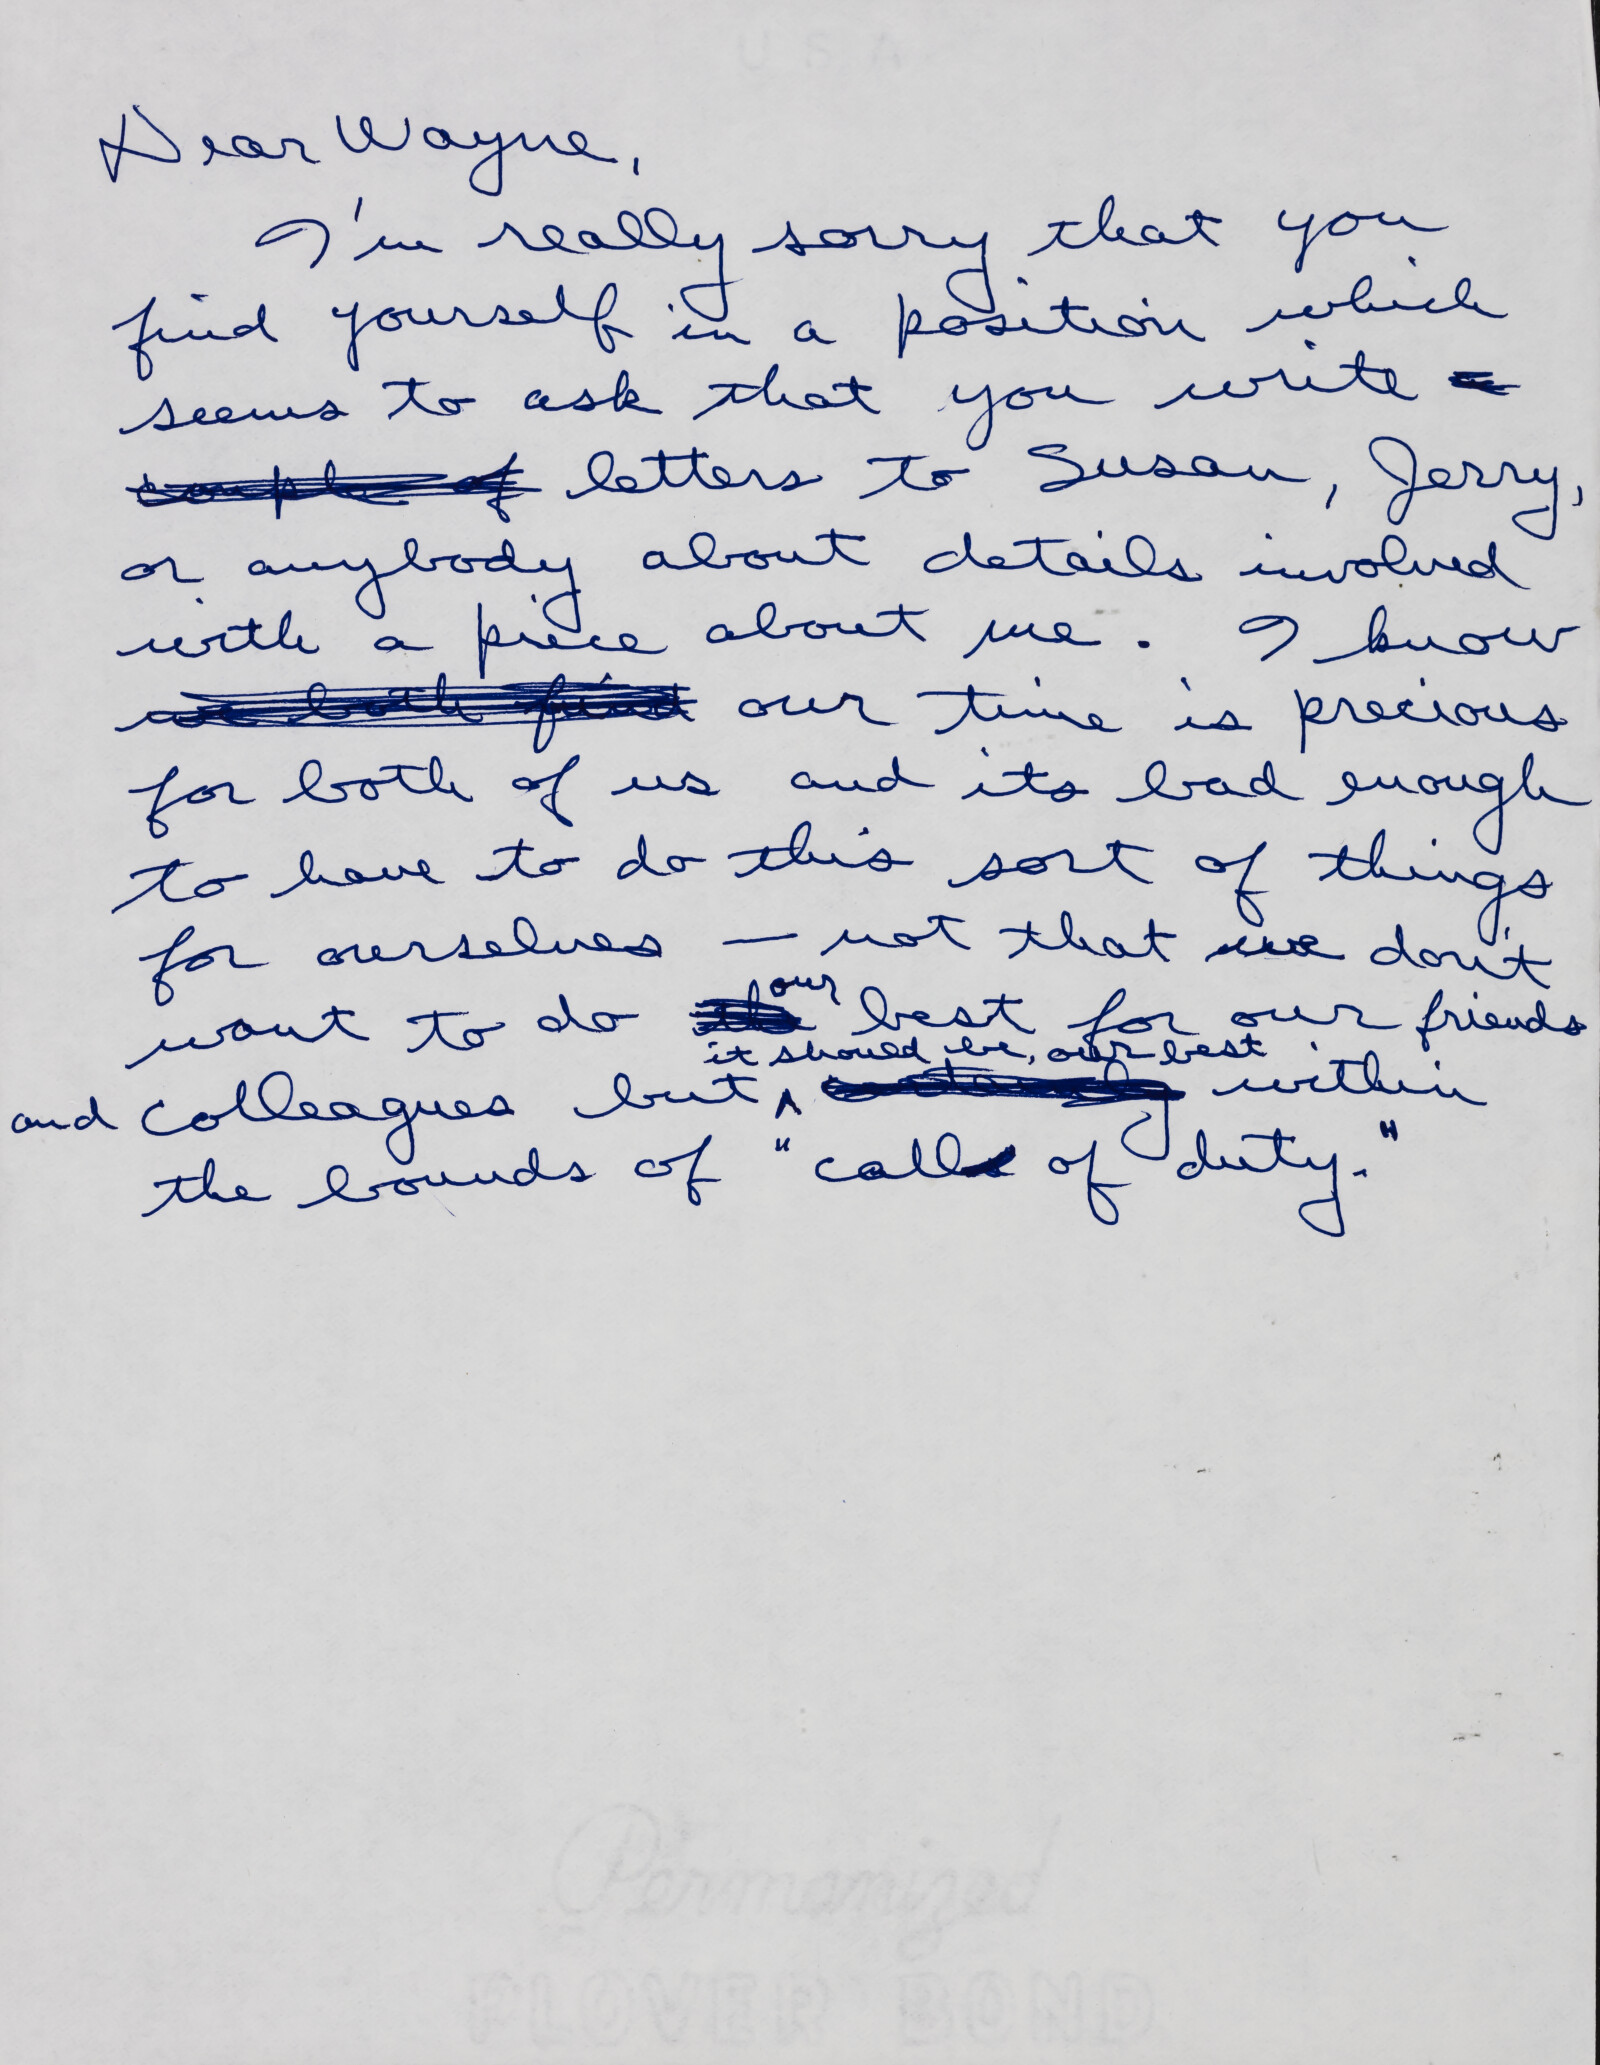 USA
Dear Wayne,
I'm really sorry that you
find yourself in a position which
seems to ask that you write a
couple of letters to Susan, Jerry,
or anybody about details involved
with a piece about me. I know
we both find our time is precious
for both of us and its bad enough
to have to do this sort of things
for ourselves — not that we don't
our
want to do the best for our friends
it should be, our best
and colleagues but ^ within
the bounds of "call of duty."
Permanized
PLOVER BOND